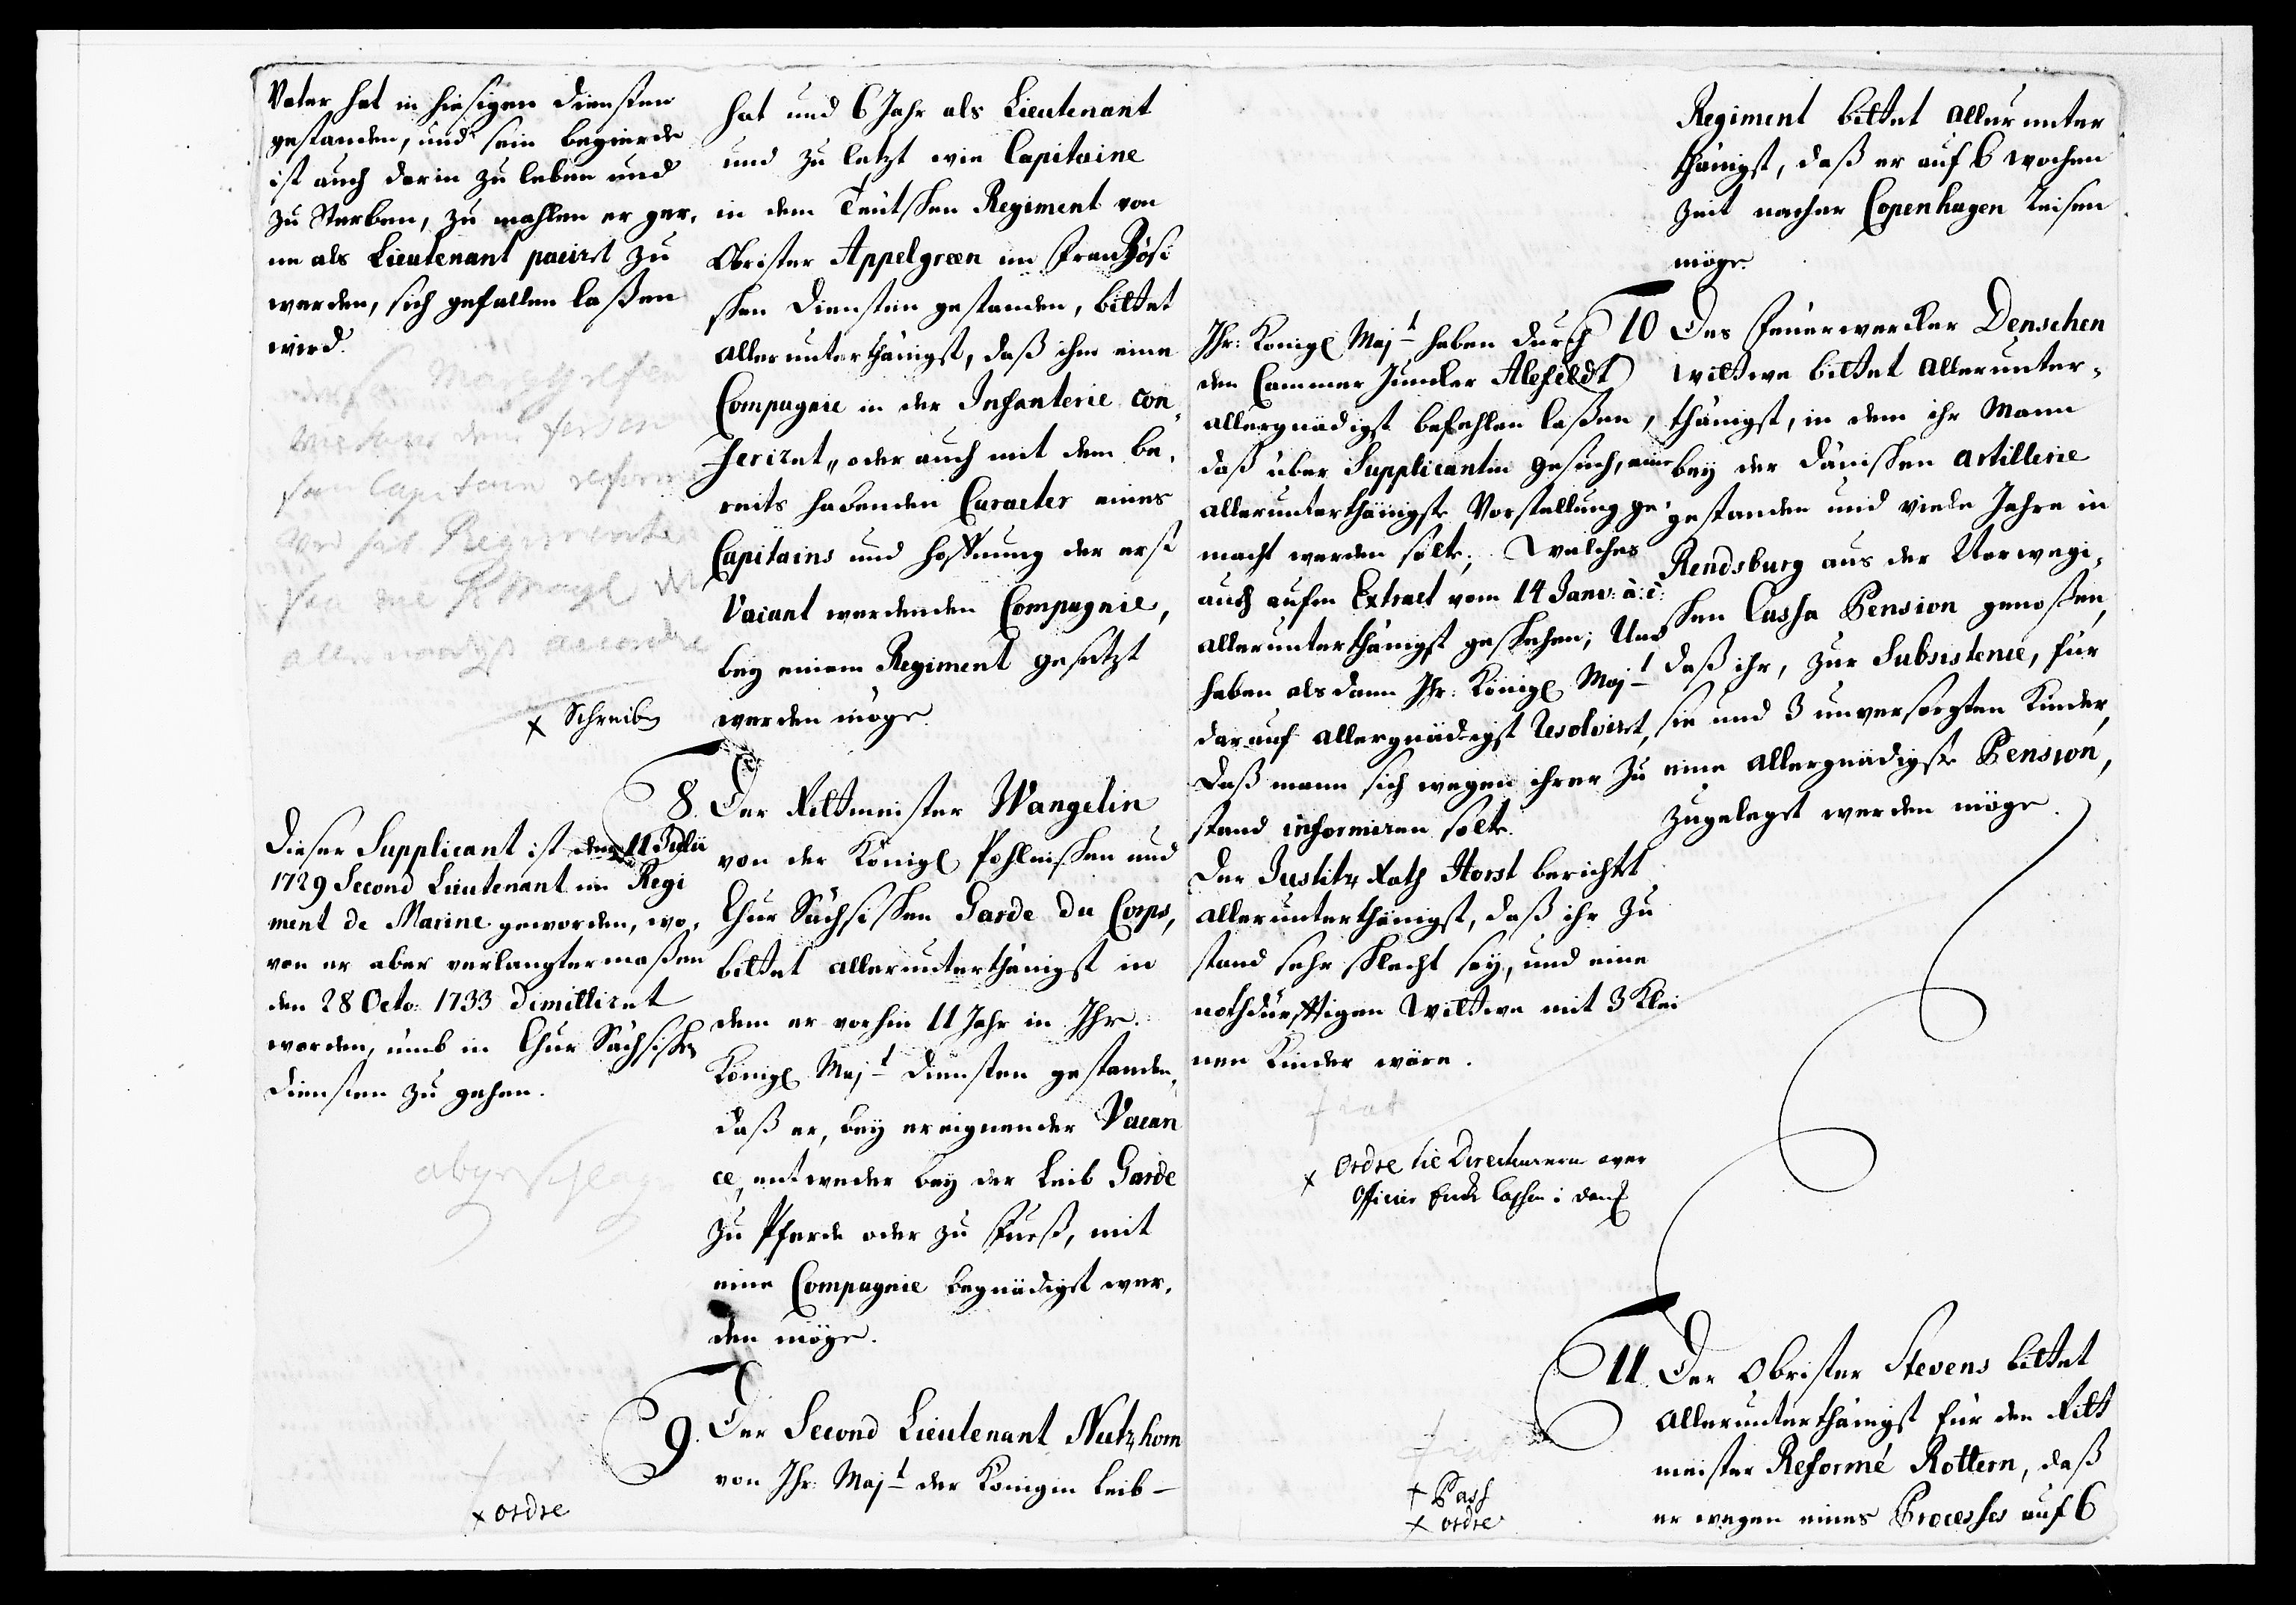 Vater hat in hiesigen Diensten
gestanden, und sein begierde
ist auch darin zu leben und
zu Sterben, zu mahlen er ger¬
ne als Lieutenant placirt zu
werden, sich gefallen laßen
wird.
Capitain reform
Regimente
allernaadigst accordere
× Schreiben
Dieser Supplicant ist den 11 Julii
1729 Second Lieutenant im Regi
ment de Marine geworden, wo¬
von er aber verlangtermaßen
den 28 Octo: 1733 Dimittiret
worden, umb in Chur Sächsischen
Diensten zu gehen.
abgeschlagen
× ordre
hat und 6 Jahr als Lieutenant
und zu letzt wie Capitaine
in dem Teutschen Regiment von
Obrister Appelgreen in Französi
schen Diensten gestanden, bittet
allerunterthänigst, daß ihm eine
Compagnie in der Infanterie con¬
feriret, oder auch mit dem be¬
reits habenden Caracter eines
Capitains und hoffnung der erst
Vacant werdenden Compagnie,
bey einem Regiment gesetzt
werden möge.
8. Der Rittmeister Wangelin
von der Königl Pohlnischen und
Chur Sächsischen Garde du Corps,
bittet allerunterthänigst in
dem er vorhin 11 Jahr in Ihr.
Königl Majt Diensten gestanden,
daß er, bey ereignender Vacan
ce, entweder bey der Leib Garde
zu Pferde oder zu Fueß, mit
eine Compagnie begnädigst wer¬
den möge.
9. Der Second Lieutenant Nutzhorn
von Ihr: Majt der Königin Leib-
Regiment bittet allerunter
thänigst, daß er auf 6 wochen
Zeit nacher Copenhagen Reisen
möge.
Ihr: Königl Majt haben durch
den Cammer Juncker Alefeldt
allergnädigst befehlen laßen,
daß über Supplicantin gesuch, eine
allerunterthänigste Vorstellung ge¬
macht werden solte; Welches
auch aufm Extract vom 14 Janv: a: c:
allerunterthänigst geschehen; Und
haben als dann Ihr: Königl Majt
darauf allergnädigst Resolviret,
Daß mann sich wegen ihrer Zu
stand informiren solte.
Der Justitz Rath Horst berichtet
allerunterthänigst, daß ihr Zu
stand sehr schlecht sey, und eine
nothdürfftigen Wittwe mit 3 Klei
nen Kinder wäre.
fiat
× Ordre til Directeurerne over
Officier Encke Cassen i Danm
10 Des Feuerwercker Denschen
Wittwe bittet allerunter¬
thänigst, in dem ihr Mann
bey der Dänischen Artillerie
gestanden und viele Jahre in
Rendsburg aus der Norwegi¬
schen Cassa Pension genoßen,
daß ihr, zur Subsistence, für
sie und 3 unversorgten Kinder,
eine allergnädigste Pension,
zugelegt werden möge.
11. Der Obrister Stevens bittet
allerunterthänigst für den Ritt
meister Reformé Rottern, daß
er wegen eines Processes auf 6
fiat
× Pass
× ordre